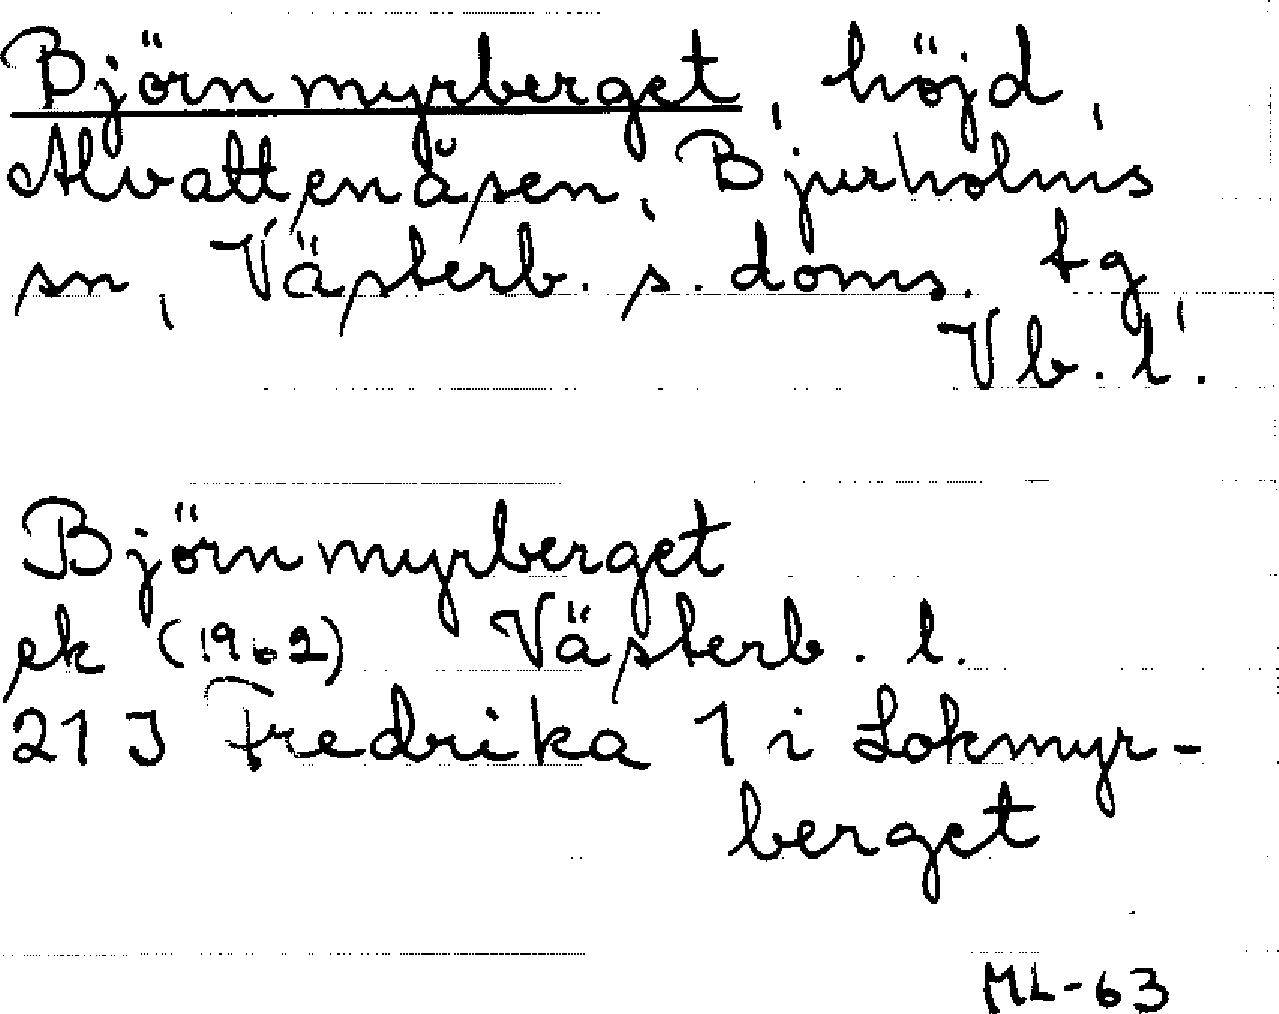 Björnmyrberget, höjd,
Alvattenåsen, Bjurholms
sn, Västerb. s. doms. tg
Vb. l.
Björnmyrberget
ek (1962) Västerb. l.
21 J Fredrika 1 i Lokmyr-
berget
ML-63